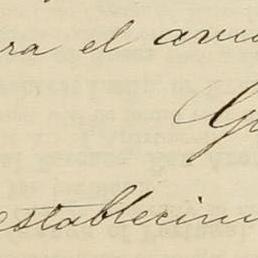 ra el avi
G
establecim